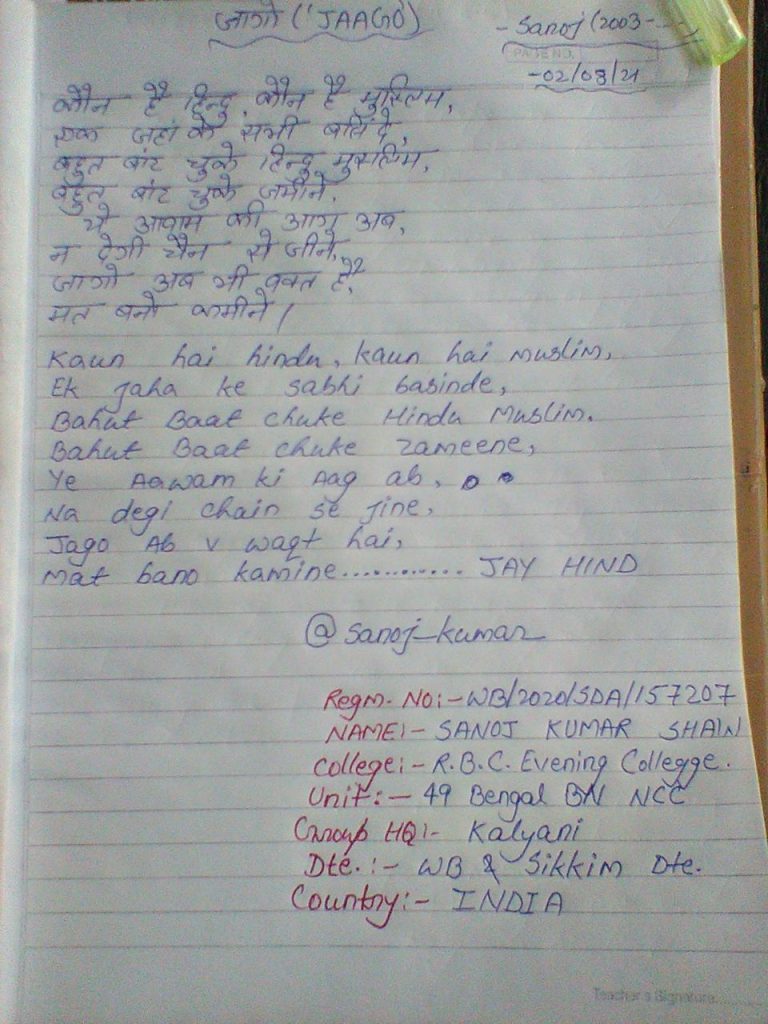 जागो ('JAAGO)
- Sanoj (2003-
PAGE NO.
-02/08/21
कौन है हिन्दु, कौन है मुस्लिम,
एक जहां के सभी बासिंदे,
बहुत बांट चुके हिन्दु मुसलिम,
बहुत बांट चुके जमीने,
ये आवाम की आग अब,
न देगी चैन से जीने,
जागो अब भी वक्त है,
मत बनो कमीने।
Kaun hai hindu, kaun hai muslim,
Ek jaha ke sabhi basinde,
Bahut Baat chuke Hindu Muslim.
Bahut Baat chuke zameene,
Ye Aawam ki Aag ab,
Na degi chain se jine,
Jago Ab v waqt hai,
Mat bano kamine............ JAY HIND
@sanoj_kumar
Regm. No:- WB/2020/SDA/157207
NAME:- SANOJ KUMAR SHAW
College:- R.B.C. Evening Collegge.
Unit:- 49 Bengal BN NCC
Group HQ:- Kalyani
Dte.:- WB & Sikkim Dte.
Country:- INDIA
Teacher's Signature..........